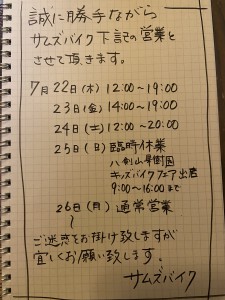 誠に勝手ながら
サムズバイク下記の営業と
させて頂きます。
7月22日(木) 12:00〜19:00
23日(金) 14:00〜19:00
24日(土) 12:00〜20:00
25日(日) 臨時休業
キッズバイクフェア出店
9:00〜16:00まで
26日(月) 通常営業
〜
ご迷惑をお掛け致しますが
宜しくお願い致します。
サムズバイク